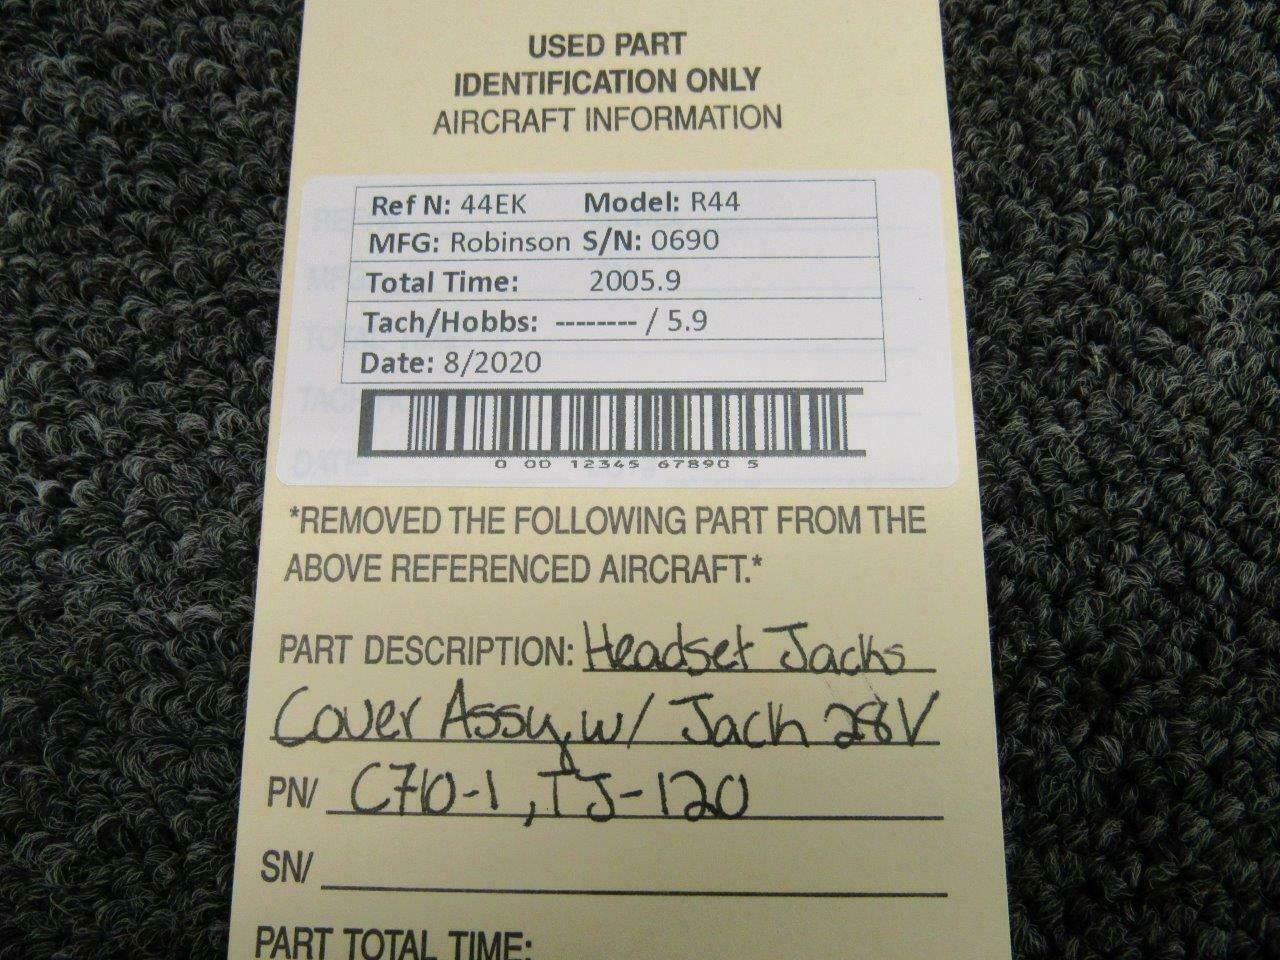 USED PART
IDENTIFICATION ONLY
AIRCRAFT INFORMATION
Ref N: 44EK Model: R44
MFG: Robinson S/N: 0690
Total Time: 2005.9
Tach/Hobbs: -------- / 5.9
Date: 8/2020
0 00 12345 67890 5
*REMOVED THE FOLLOWING PART FROM THE
ABOVE REFERENCED AIRCRAFT.*
PART DESCRIPTION: Headset Jacks
Cover Assy, w/ Jack 28V
PN/ C710-1, TJ-120
SN/
PART TOTAL TIME: